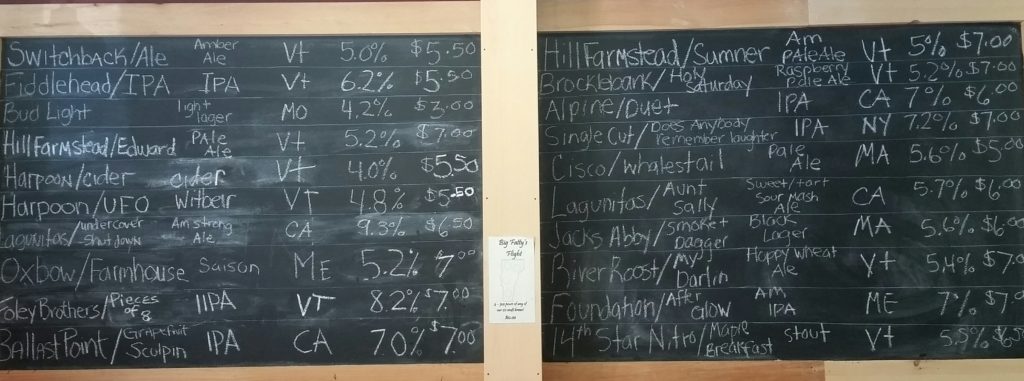 Switchback/Ale Amber Ale Vt 5.0% $5.50
Fiddlehead/IPA IPA Vt 6.2% $5.50
Bud Light light lager MO 4.2% $3.00
Hill Farmstead/Edward Pale Ale Vt 5.2% $7.00
Harpoon/cider cider Vt 4.0% $5.50
Harpoon/UFO Witbeir VT 4.8% $5.50
Lagunitas/undercover shut down Am strong Ale CA 9.3% $6.50
Oxbow/Farmhouse Saison ME 5.2% 7.00
Foley Brothers/Pieces of 8 IIPA VT 8.2% $7.00
Ballast Point/Grapefruit Sculpin IPA CA 7.0% $7.00
Big Fatty's
Flight
Hill Farmstead/Sumner Am pale Ale Vt 5% $7.00
Brocklebank/Holy Saturday Raspberry pale Ale Vt 5.2% $7.00
Alpine/Duet IPA CA 7% $6.00
Single Cut/Does Anybody remember laughter IPA NY 7.2% $7.00
Cisco/whalestail Pale Ale MA 5.6% $5.00
Lagunitas/Aunt Sally Sweet/tart Sour Mash Ale CA 5.7% $6.00
Jacks Abby/Smoke + Dagger Black Lager MA 5.6% $6.00
River Roost/My Darlin Hoppy Wheat Ale Vt 5.4% $7.0
Foundation/After Glow Am IPA ME 7% $7.0
14th Star Nitro/Maple Breakfast stout Vt 5.5% $6.5